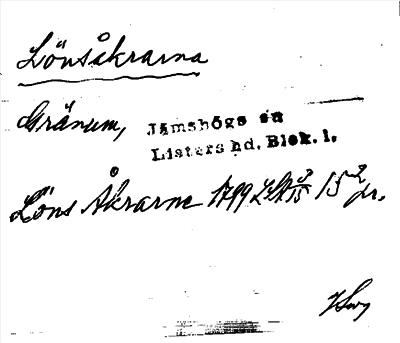 Lönsåkrarna
Gränum, Jämshögs sn
Listers hd. Blek. l.
Löns Åkrarne 1799